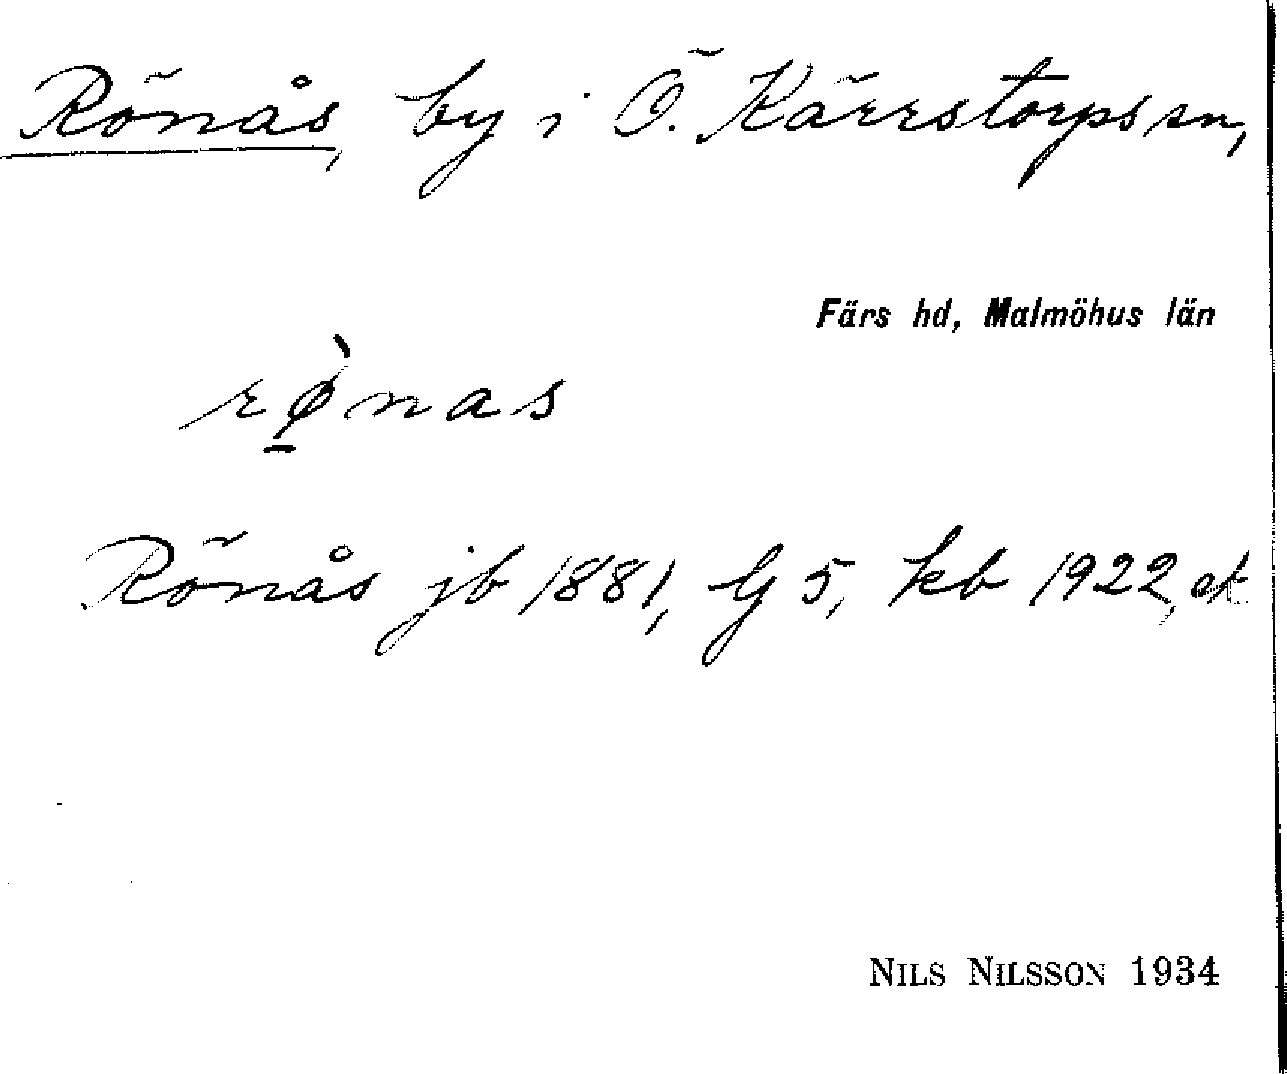 Rönås, by i Ö. Kärrstorps sn,
Färs hd, Malmöhus län
rø̱̀nas
Rönås jb 1881, Gj 5, kb 1922, et
NILS NILSSON 1934